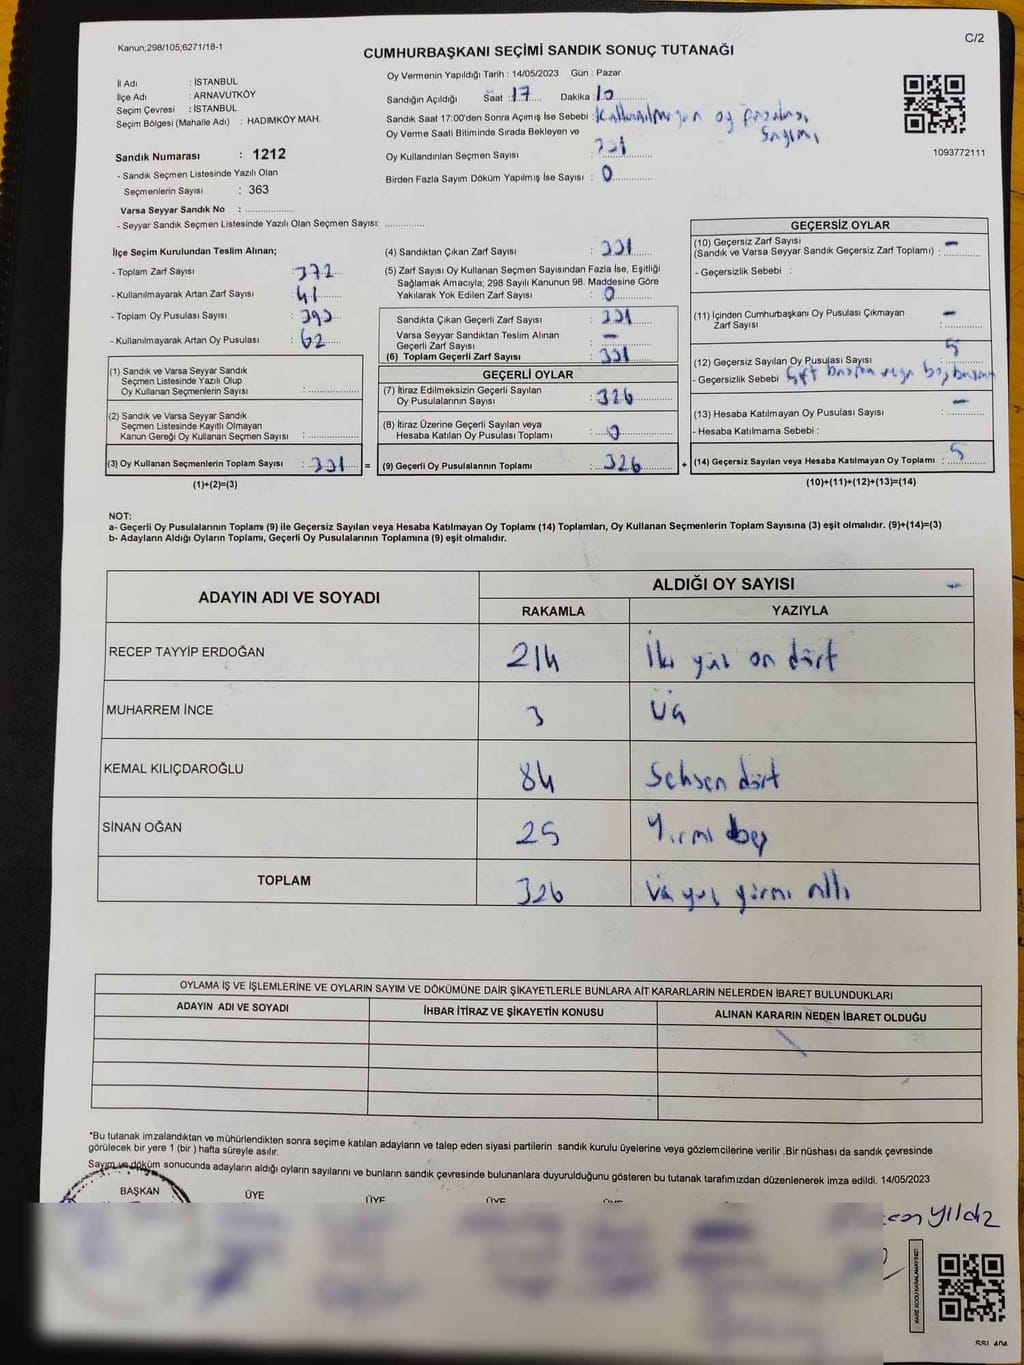 Kanun;298/105;6271/18-1
C/2
CUMHURBAŞKANI SEÇİMİ SANDIK SONUÇ TUTANAĞI
İl Adı : İSTANBUL
İlçe Adı : ARNAVUTKÖY
Seçim Çevresi : İSTANBUL
Seçim Bölgesi (Mahalle Adı) : HADIMKÖY MAH.
Sandık Numarası : 1212
- Sandık Seçmen Listesinde Yazılı Olan
Seçmenlerin Sayısı : 363
Varsa Seyyar Sandık No : ..................
- Seyyar Sandık Seçmen Listesinde Yazılı Olan Seçmen Sayısı: ..............
Oy Vermenin Yapıldığı Tarih : 14/05/2023 Gün : Pazar
Sandığın Açıldığı Saat : 17 Dakika : 10
Sandık Saat 17:00'den Sonra Açımış İse Sebebi : Kullanılmayan oy pusulası
sayımı
Oy Verme Saati Bitiminde Sırada Bekleyen ve
Oy Kullandırılan Seçmen Sayısı : 331
Birden Fazla Sayım Döküm Yapılmış İse Sayısı : 0
1093772111
İlçe Seçim Kurulundan Teslim Alınan;
- Toplam Zarf Sayısı : 372
- Kullanılmayarak Artan Zarf Sayısı : 41
- Toplam Oy Pusulası Sayısı : 393
- Kullanılmayarak Artan Oy Pusulası : 62
(1) Sandık ve Varsa Seyyar Sandık
Seçmen Listesinde Yazılı Olup
Oy Kullanan Seçmenlerin Sayısı : ..................
(2) Sandık ve Varsa Seyyar Sandık
Seçmen Listesinde Kayıtlı Olmayan
Kanun Gereği Oy Kullanan Seçmen Sayısı : ..................
(3) Oy Kullanan Seçmenlerin Toplam Sayısı : 331 =
(1)+(2)=(3)
(4) Sandıktan Çıkan Zarf Sayısı : 331
(5) Zarf Sayısı Oy Kullanan Seçmen Sayısından Fazla İse, Eşitliği
Sağlamak Amacıyla; 298 Sayılı Kanunun 98. Maddesine Göre
Yakılarak Yok Edilen Zarf Sayısı : 0
Sandıkta Çıkan Geçerli Zarf Sayısı : 331
Varsa Seyyar Sandıktan Teslim Alınan
Geçerli Zarf Sayısı : -
(6) Toplam Geçerli Zarf Sayısı : 331
GEÇERLİ OYLAR
(7) İtiraz Edilmeksizin Geçerli Sayılan
Oy Pusulalarının Sayısı : 326
(8) İtiraz Üzerine Geçerli Sayılan veya
Hesaba Katılan Oy Pusulası Toplamı : 0
(9) Geçerli Oy Pusulalarının Toplamı : 326 +
GEÇERSİZ OYLAR
(10) Geçersiz Zarf Sayısı
(Sandık ve Varsa Seyyar Sandık Geçersiz Zarf Toplamı) : -
- Geçersizlik Sebebi :
(11) İçinden Cumhurbaşkanı Oy Pusulası Çıkmayan
Zarf Sayısı : -
(12) Geçersiz Sayılan Oy Pusulası Sayısı : 5
- Geçersizlik Sebebi : Çift basılan veya boş
(13) Hesaba Katılmayan Oy Pusulası Sayısı : -
- Hesaba Katılmama Sebebi :
(14) Geçersiz Sayılan veya Hesaba Katılmayan Oy Toplamı : 5
(10)+(11)+(12)+(13)=(14)
NOT:
a- Geçerli Oy Pusulalarının Toplamı (9) ile Geçersiz Sayılan veya Hesaba Katılmayan Oy Toplamı (14) Toplamları, Oy Kullanan Seçmenlerin Toplam Sayısına (3) eşit olmalıdır. (9)+(14)=(3)
b- Adayların Aldığı Oyların Toplamı, Geçerli Oy Pusulalarının Toplamına (9) eşit olmalıdır.
ADAYIN ADI VE SOYADI
ALDIĞI OY SAYISI -
RAKAMLA YAZIYLA
RECEP TAYYİP ERDOĞAN 214 İki yüz on dört
MUHARREM İNCE 3 Üç
KEMAL KILIÇDAROĞLU 84 Seksen dört
SİNAN OĞAN 25 Yirmi beş
TOPLAM 326 Üç yüz yirmi altı
OYLAMA İŞ VE İŞLEMLERİNE VE OYLARIN SAYIM VE DÖKÜMÜNE DAİR ŞİKAYETLERLE BUNLARA AİT KARARLARIN NELERDEN İBARET BULUNDUKLARI
ADAYIN ADI VE SOYADI İHBAR İTİRAZ VE ŞİKAYETİN KONUSU ALINAN KARARIN NEDEN İBARET OLDUĞU
*Bu tutanak imzalandıktan ve mühürlendikten sonra seçime katılan adayların ve talep eden siyasi partilerin sandık kurulu üyelerine veya gözlemcilerine verilir .Bir nüshası da sandık çevresinde
görülecek bir yere 1 (bir ) hafta süreyle asılır.
Sayım ve döküm sonucunda adayların aldığı oyların sayılarını ve bunların sandık çevresinde bulunanlara duyurulduğunu gösteren bu tutanak tarafımızdan düzenlenerek imza edildi. 14/05/2023
BAŞKAN ÜYE ÜYE ÜYE
Yıldız
KARE KODU KARALAMAYINIZ!